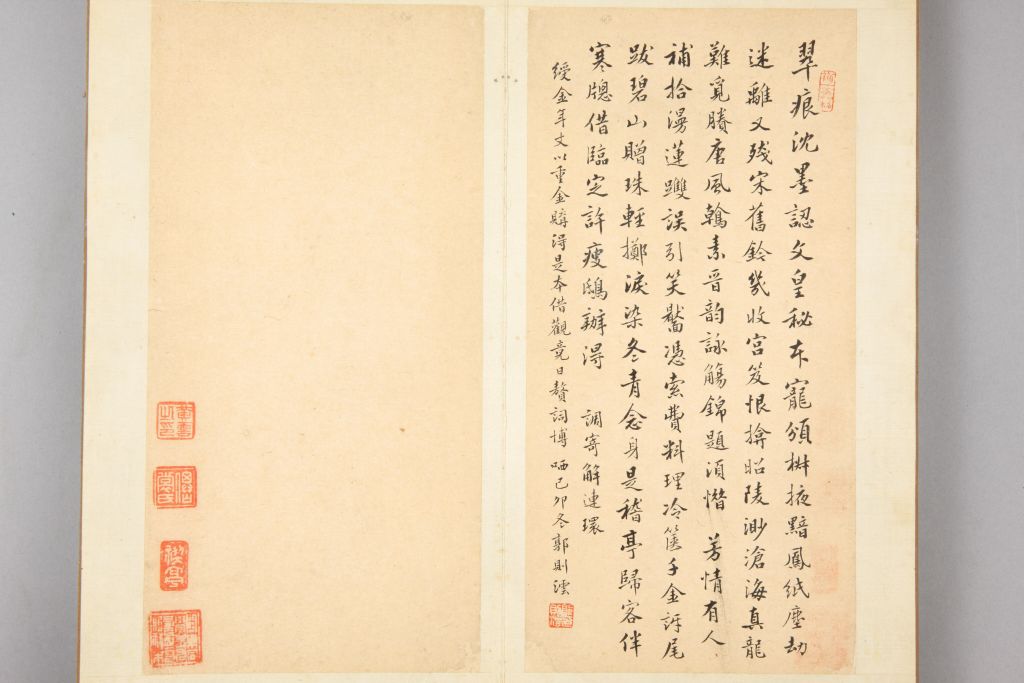 翠痕沈墨認文皇秘本寵頒椒掖黯鳳紙塵劫
迷離又殘宋舊鈐幾收宮笈恨揜昭陵渺滄海真龍
難覓賸唐風翰素晉韵詠觴錦題須惜 芳情有人
補拾漫蓮躞誤引笑黶憑索費料理冷篋千金訝尾
跋碧山贈珠輕擲淚染冬青念身是稽亭歸客伴
寒牕借臨定許瘦鵶辦得 調寄解連環
綬金年丈以重金購得是本借觀竟日贅詞博 哂己卯冬郭則澐